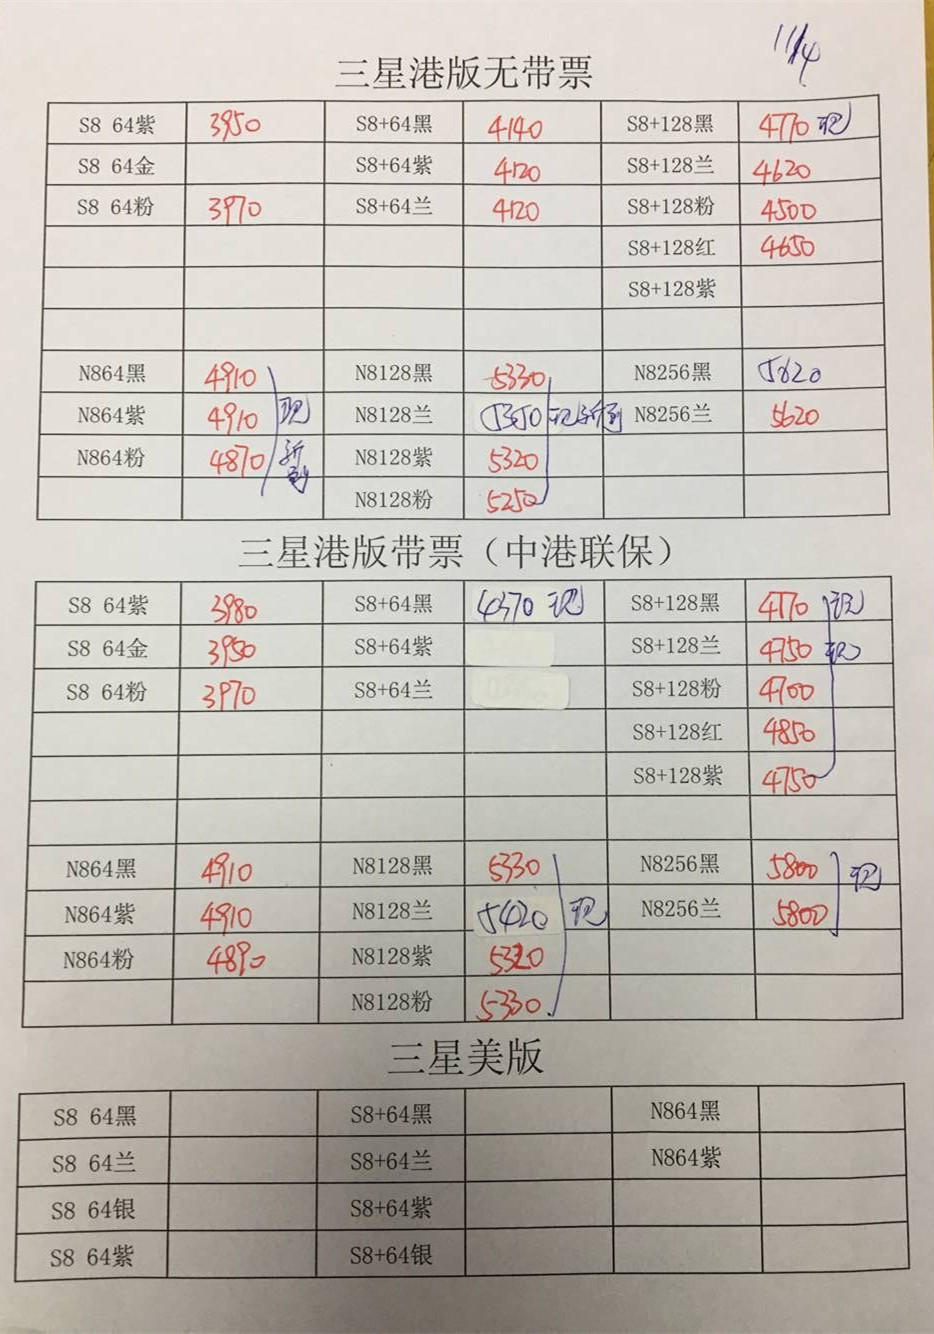 11/4
三星港版无带票
S8 64紫 3950 S8+64黑 4140 S8+128黑 4770 现
S8 64金 S8+64紫 4120 S8+128兰 4620
S8 64粉 3970 S8+64兰 4120 S8+128粉 4500
S8+128红 4650
S8+128紫
N864黑 4910 N8128黑 5330 N8256黑 5620
N864紫 4910 现 N8128兰 5350 现新到 N8256兰 5620
N864粉 4870 新到 N8128紫 5320
N8128粉 5250
三星港版带票（中港联保）
S8 64紫 3980 S8+64黑 4370 现 S8+128黑 4770 现
S8 64金 3950 S8+64紫 S8+128兰 4750 现
S8 64粉 3970 S8+64兰 S8+128粉 4700
S8+128红 4850
S8+128紫 4750
N864黑 4910 N8128黑 5330 N8256黑 5800 现
N864紫 4910 N8128兰 5420 现 N8256兰 5800
N864粉 4890 N8128紫 5320
N8128粉 5330
三星美版
S8 64黑 S8+64黑 N864黑
S8 64兰 S8+64兰 N864紫
S8 64银 S8+64紫
S8 64紫 S8+64银